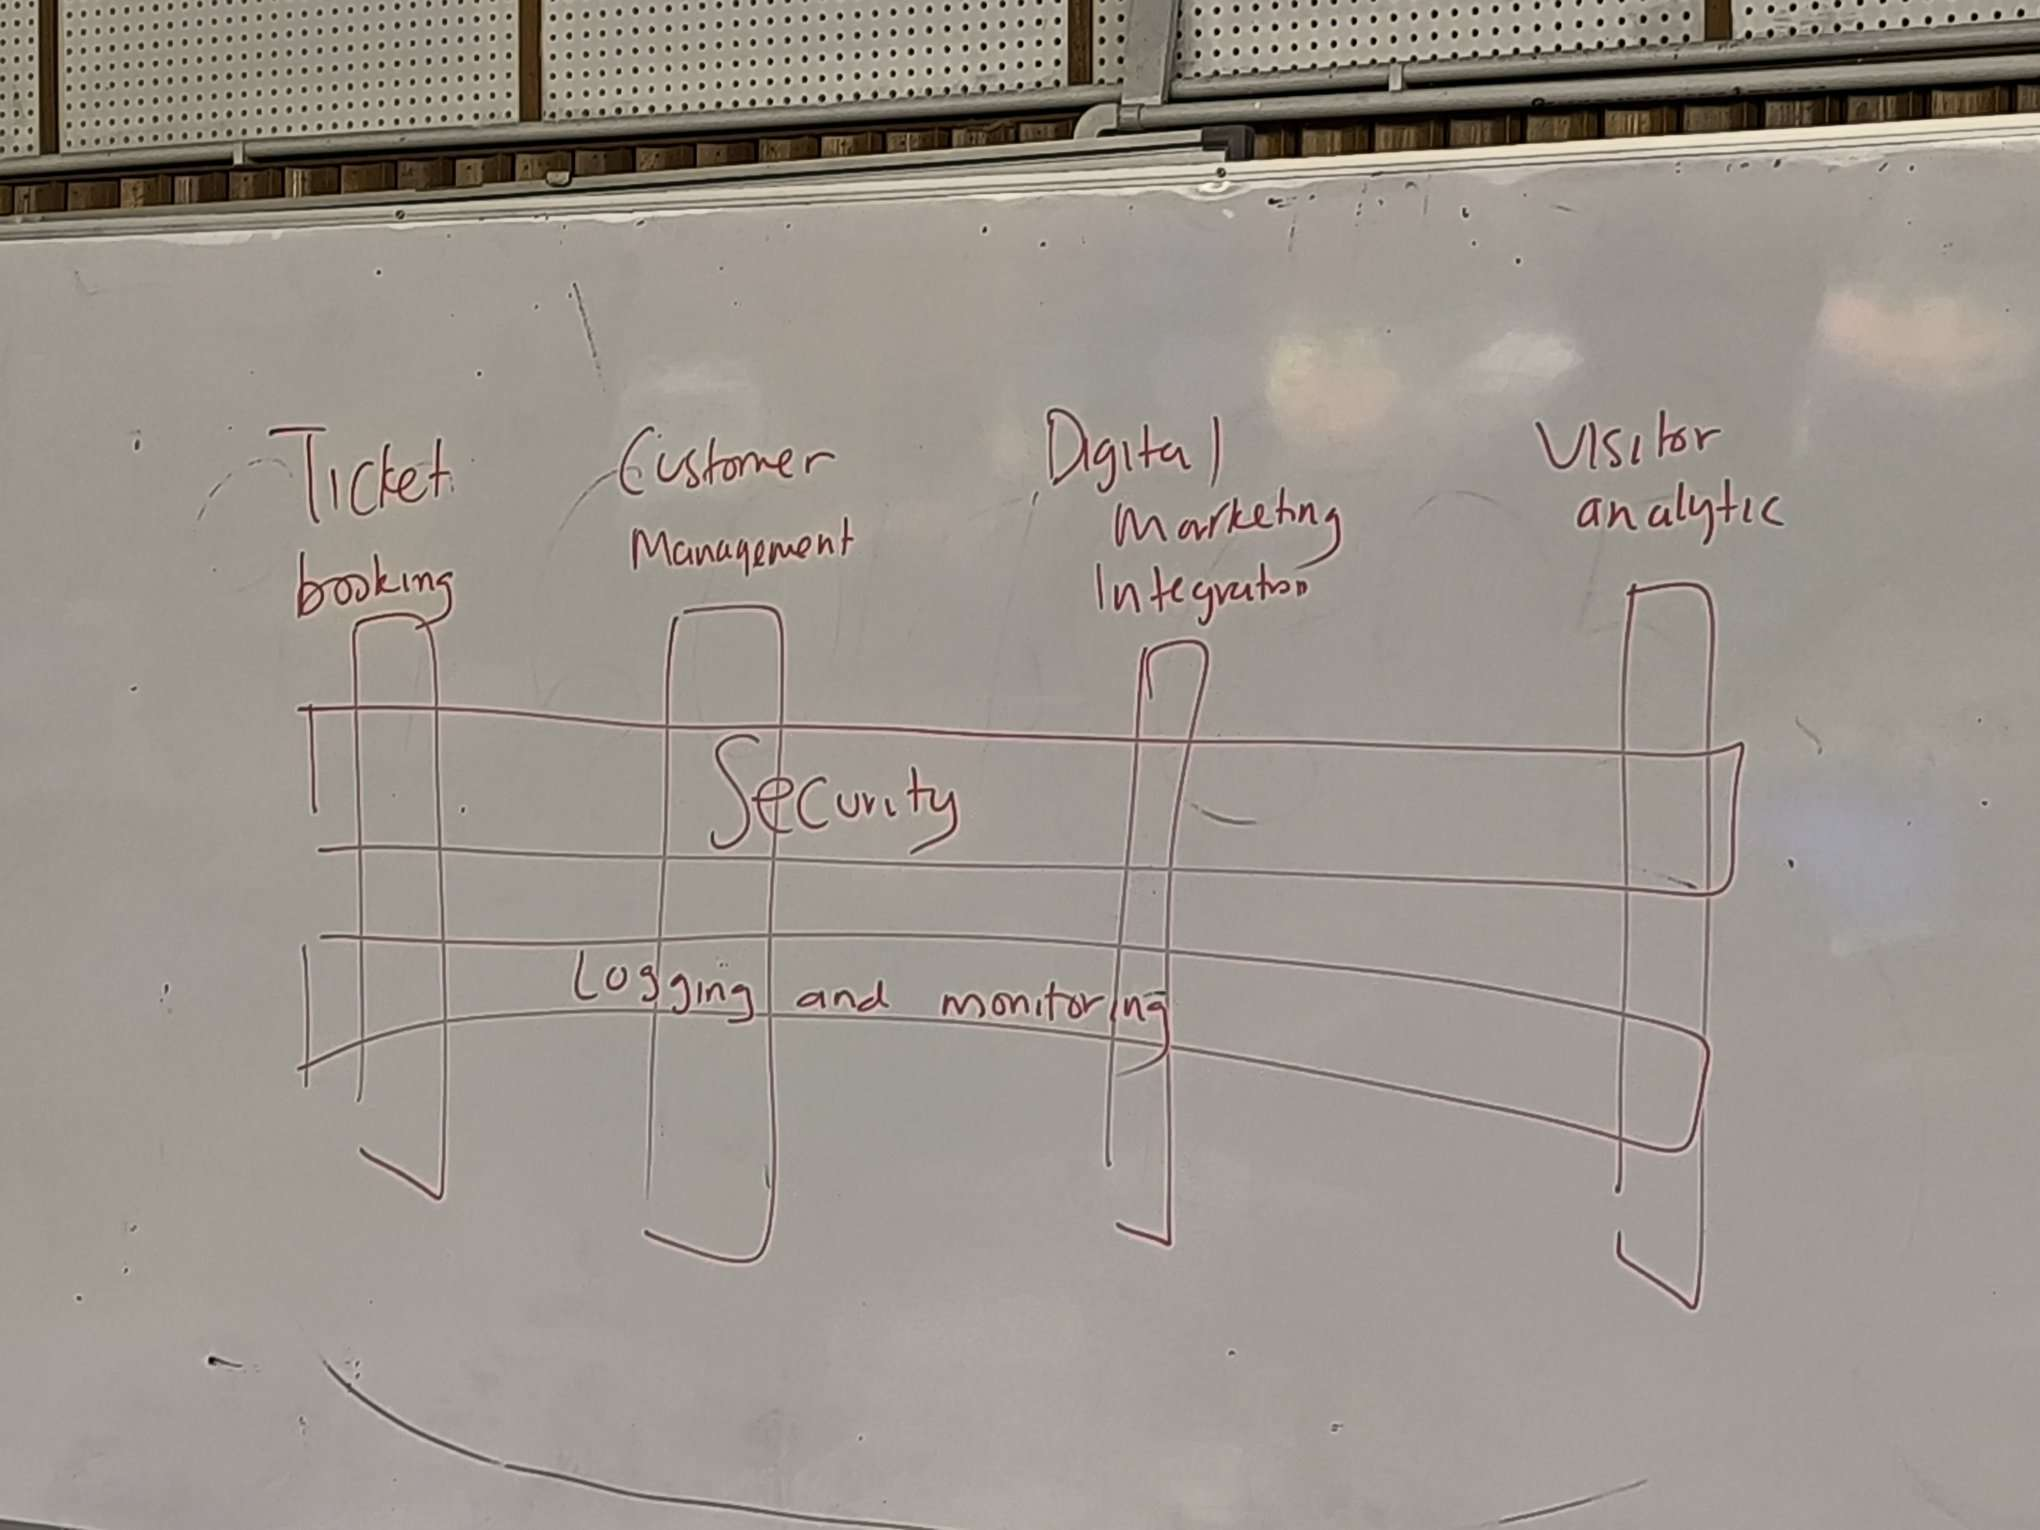 Ticket
booking
Customer
Management
Digital
Marketing
Integration
Visitor
analytic
Security
Logging and monitoring